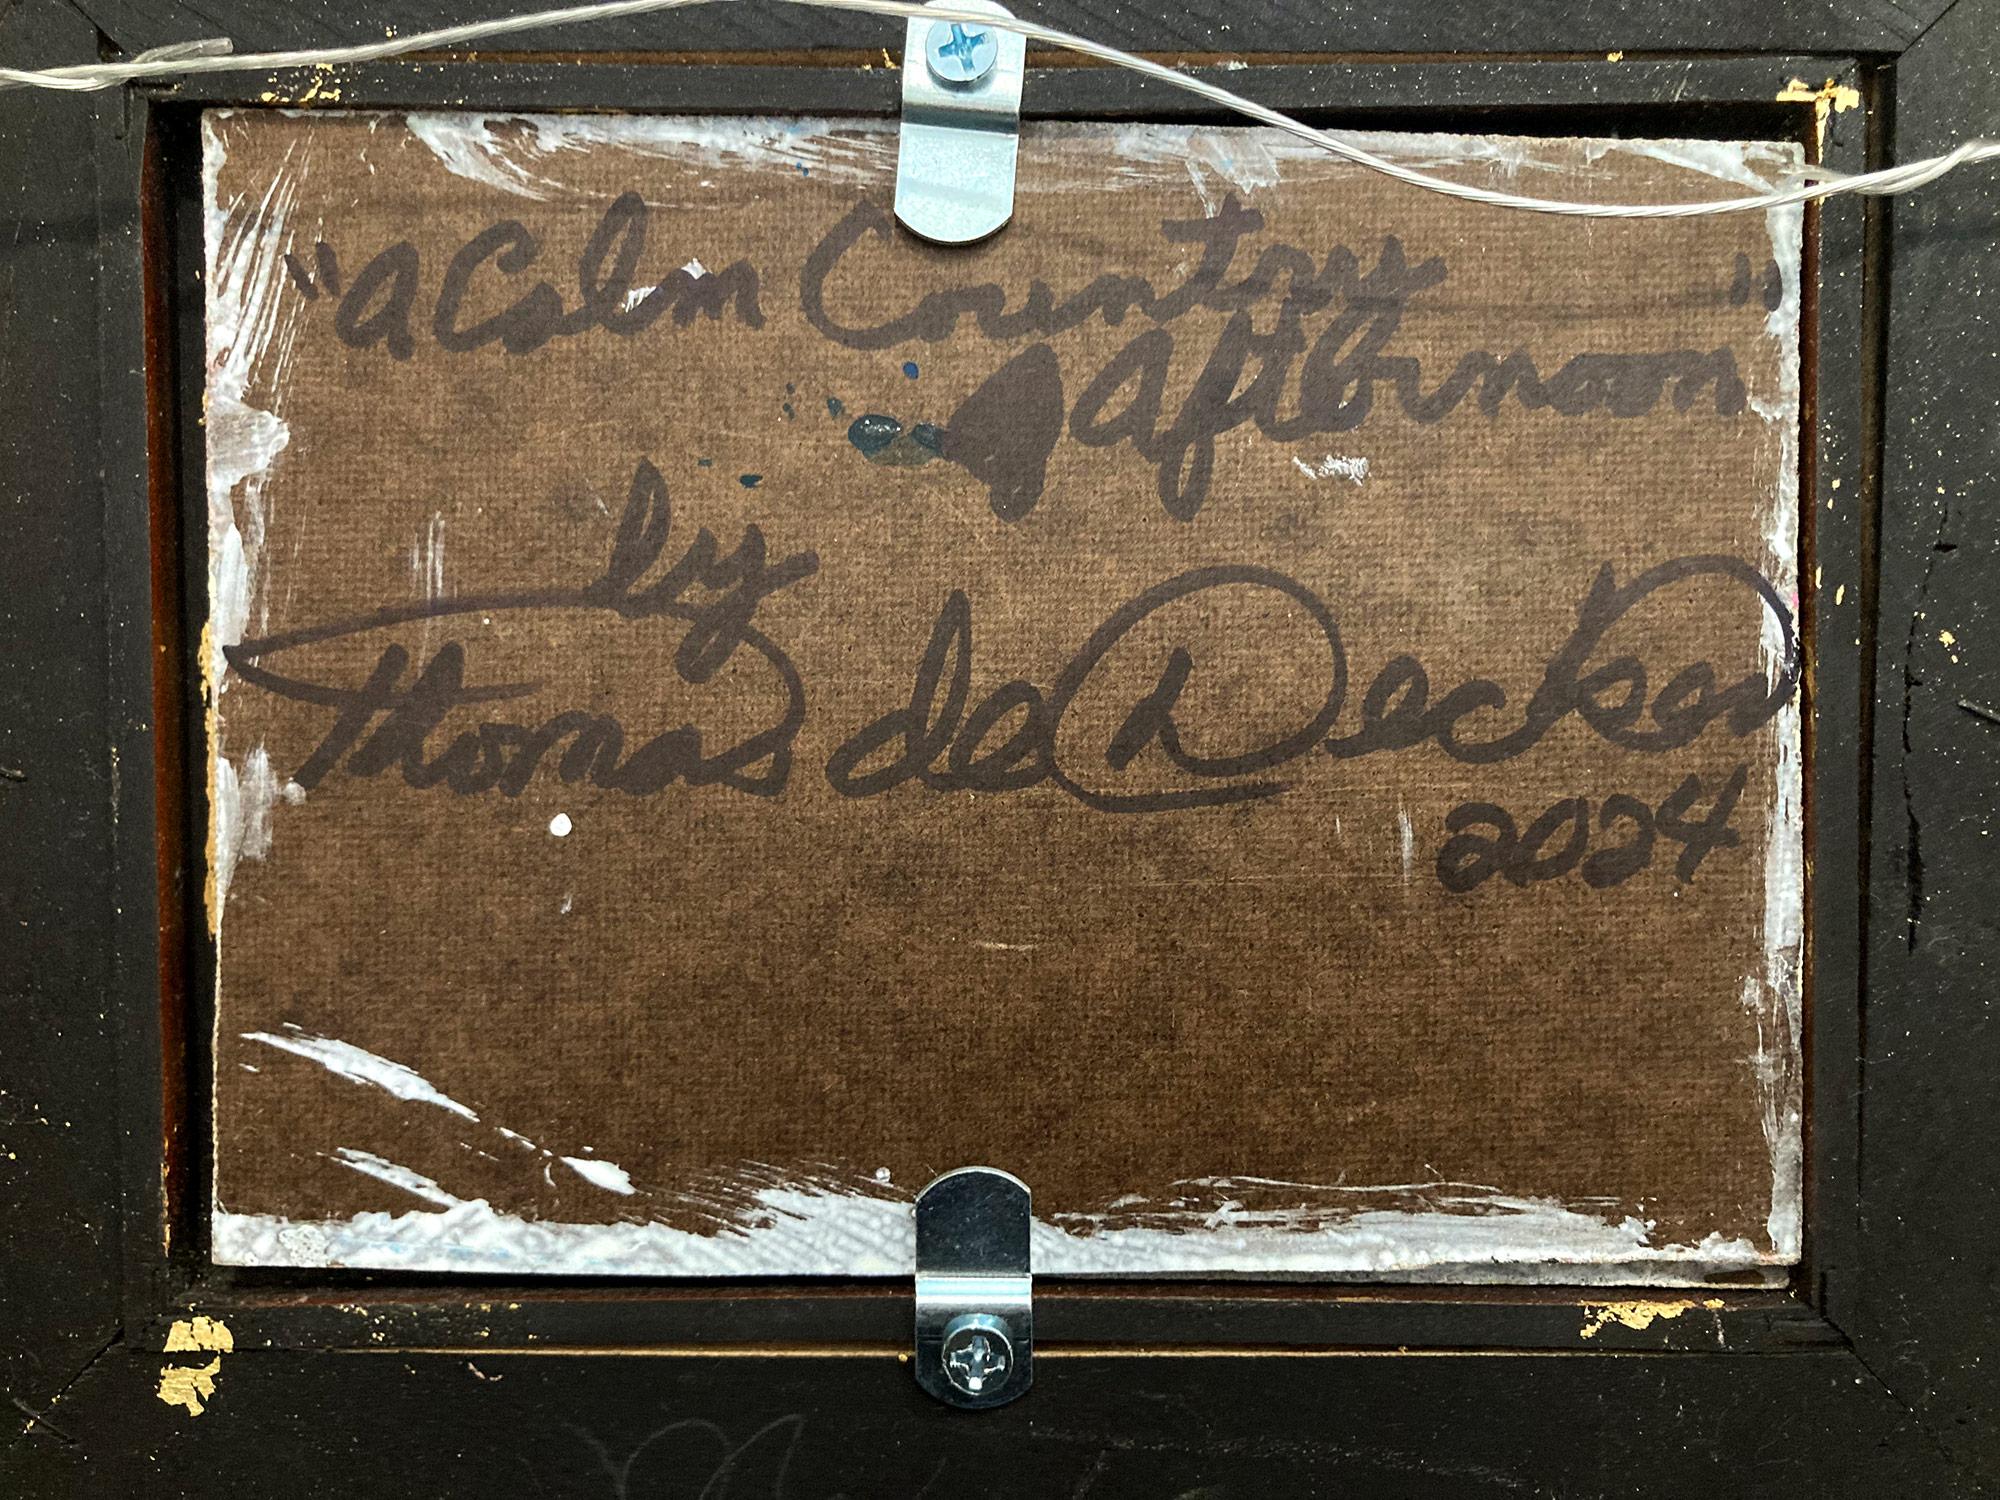 "a Calm Country
afternoon"
by
Thomas de Decker
2024